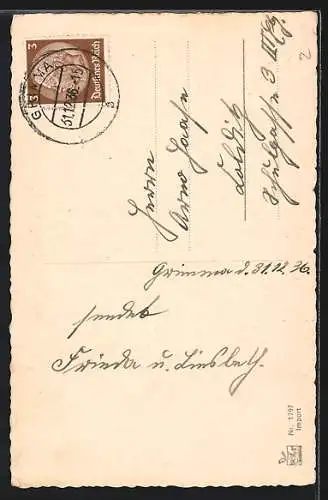 GRIMMA
31.12.36.-15
3
Deutsches Reich
Herrn
Arno Haase
Colditz
Schulgasse 3 III
2
Grimma d. 31.12.36.
sendet
Frieda u. Liesbeth.
Nr. 1797
Import